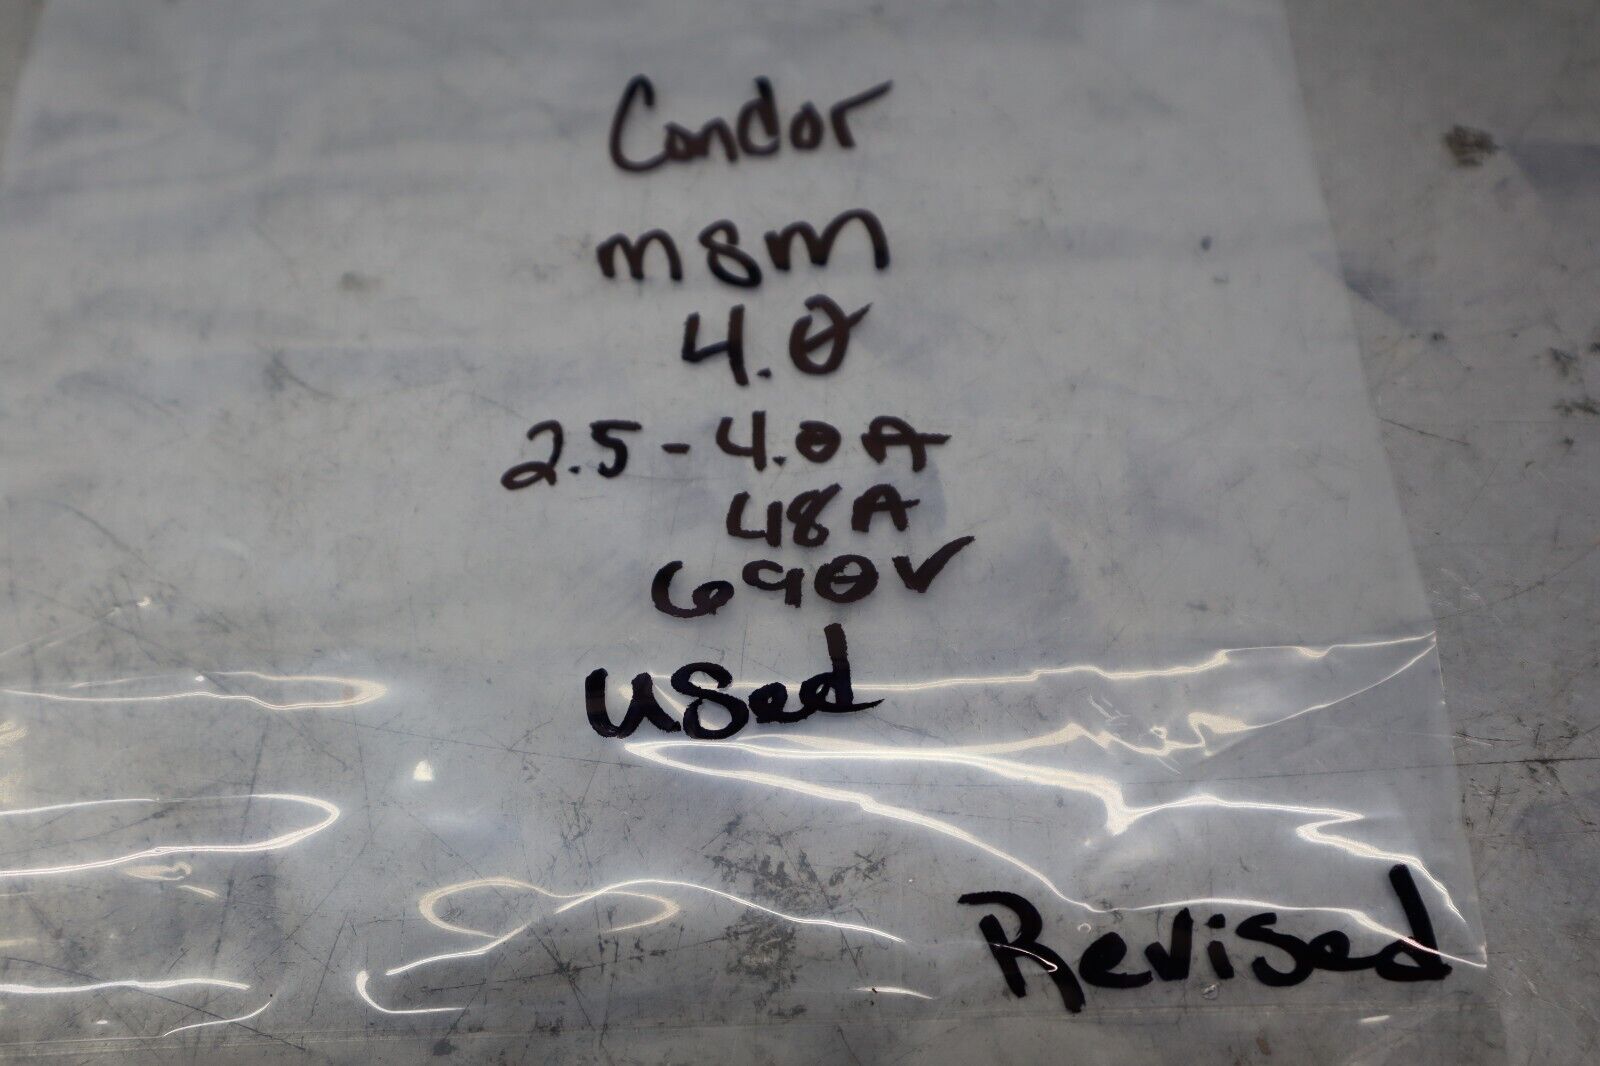 Condor
msm
4.0
2.5-4.0A
48A
690V
used
Revised